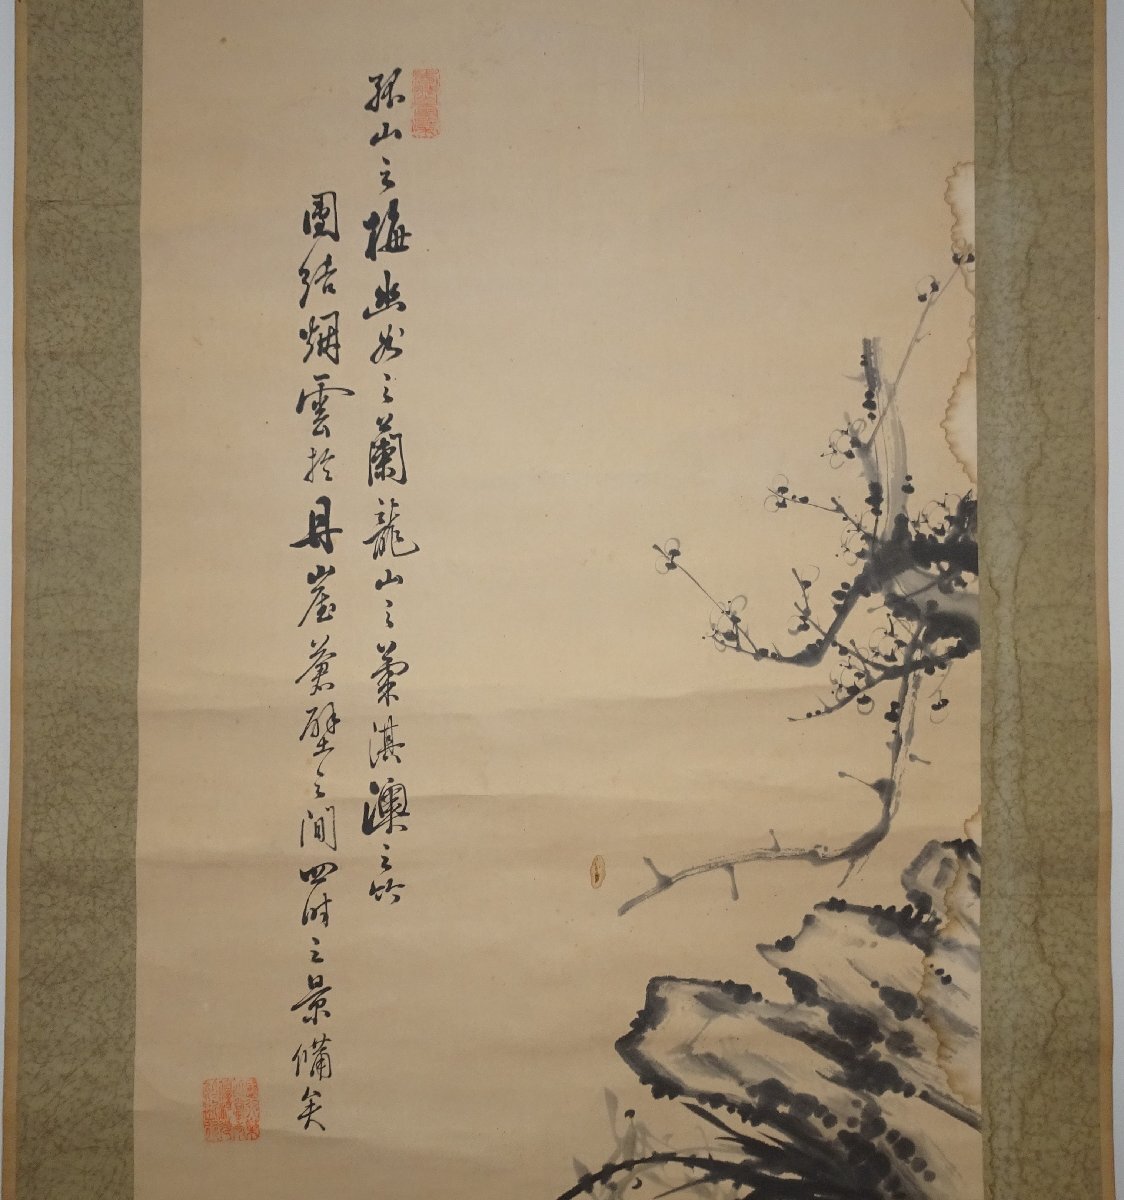 孤山之梅幽谷之蘭龍山之菊淇澳之竹
團結烟雲於丹崖蒼壁之間四時之景備矣